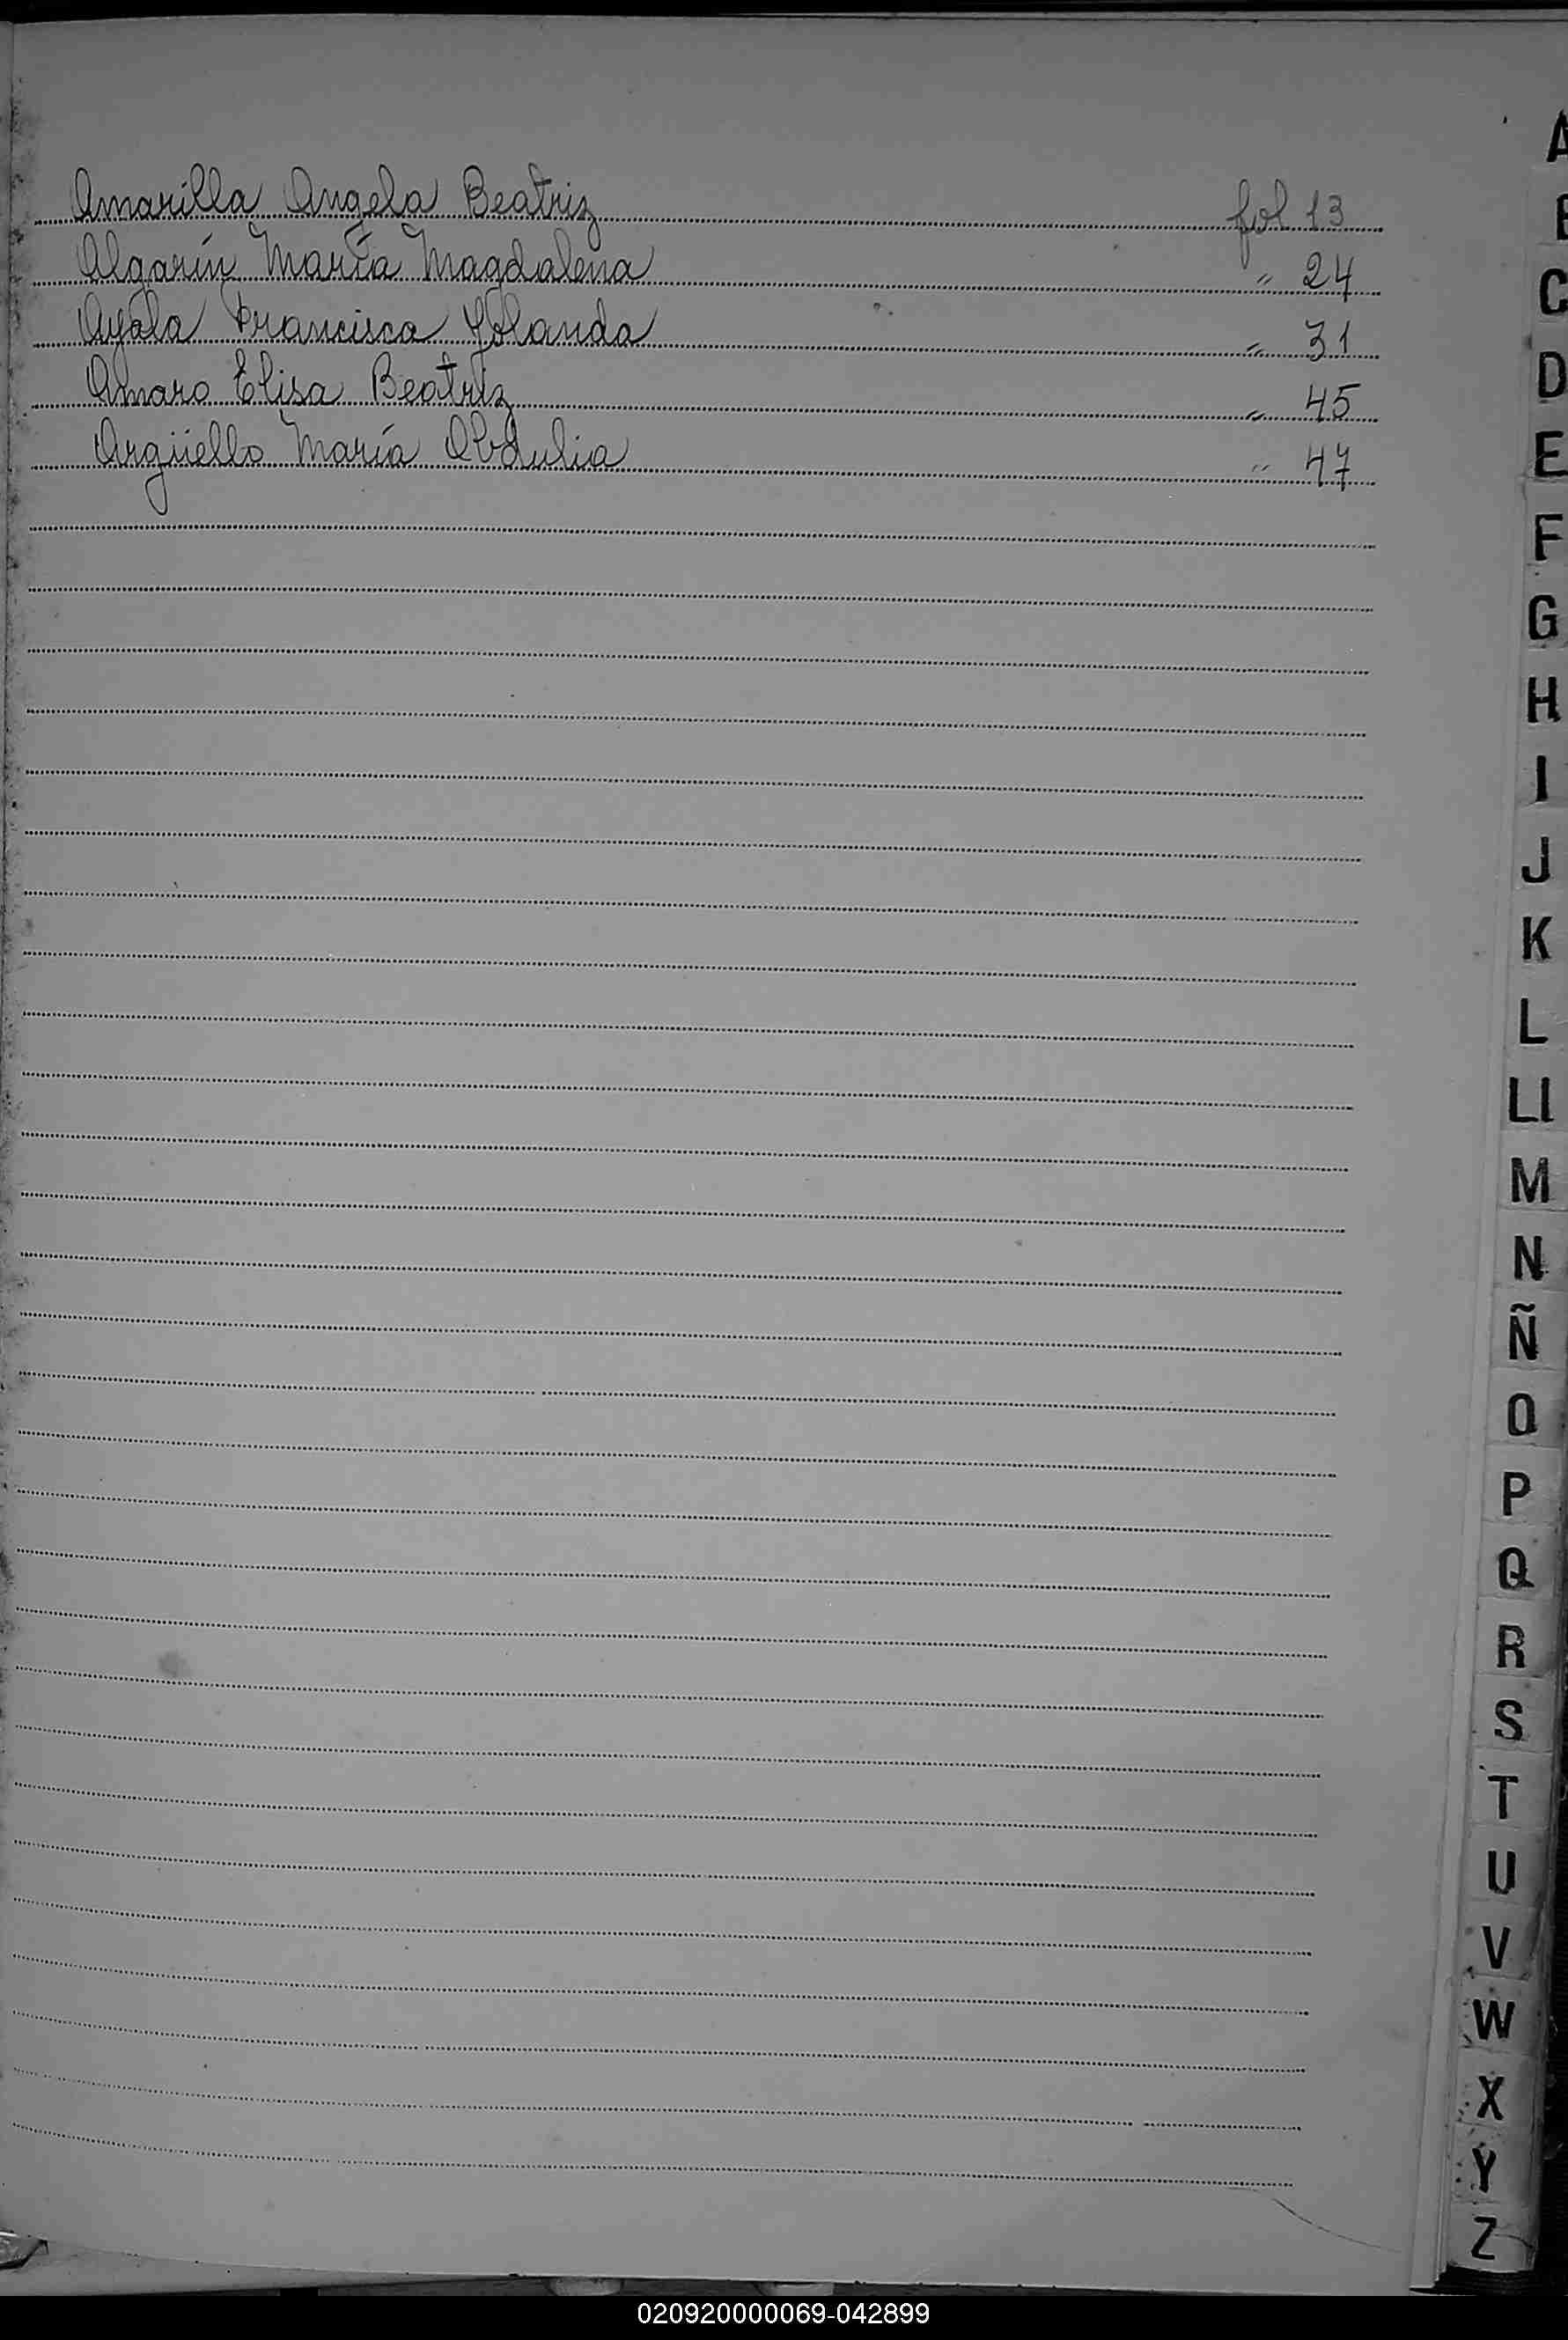 Amarilla Angela Beatriz fol 13
Algarín María Magdalena " 24
Ayala Francisca Yolanda " 31
Amaro Elisa Beatriz " 45
Argüello María Obdulia " 47
A
B
C
D
E
F
G
H
I
J
K
L
Ll
M
N
Ñ
O
P
Q
R
S
T
U
V
W
X
Y
Z
020920000069-042899